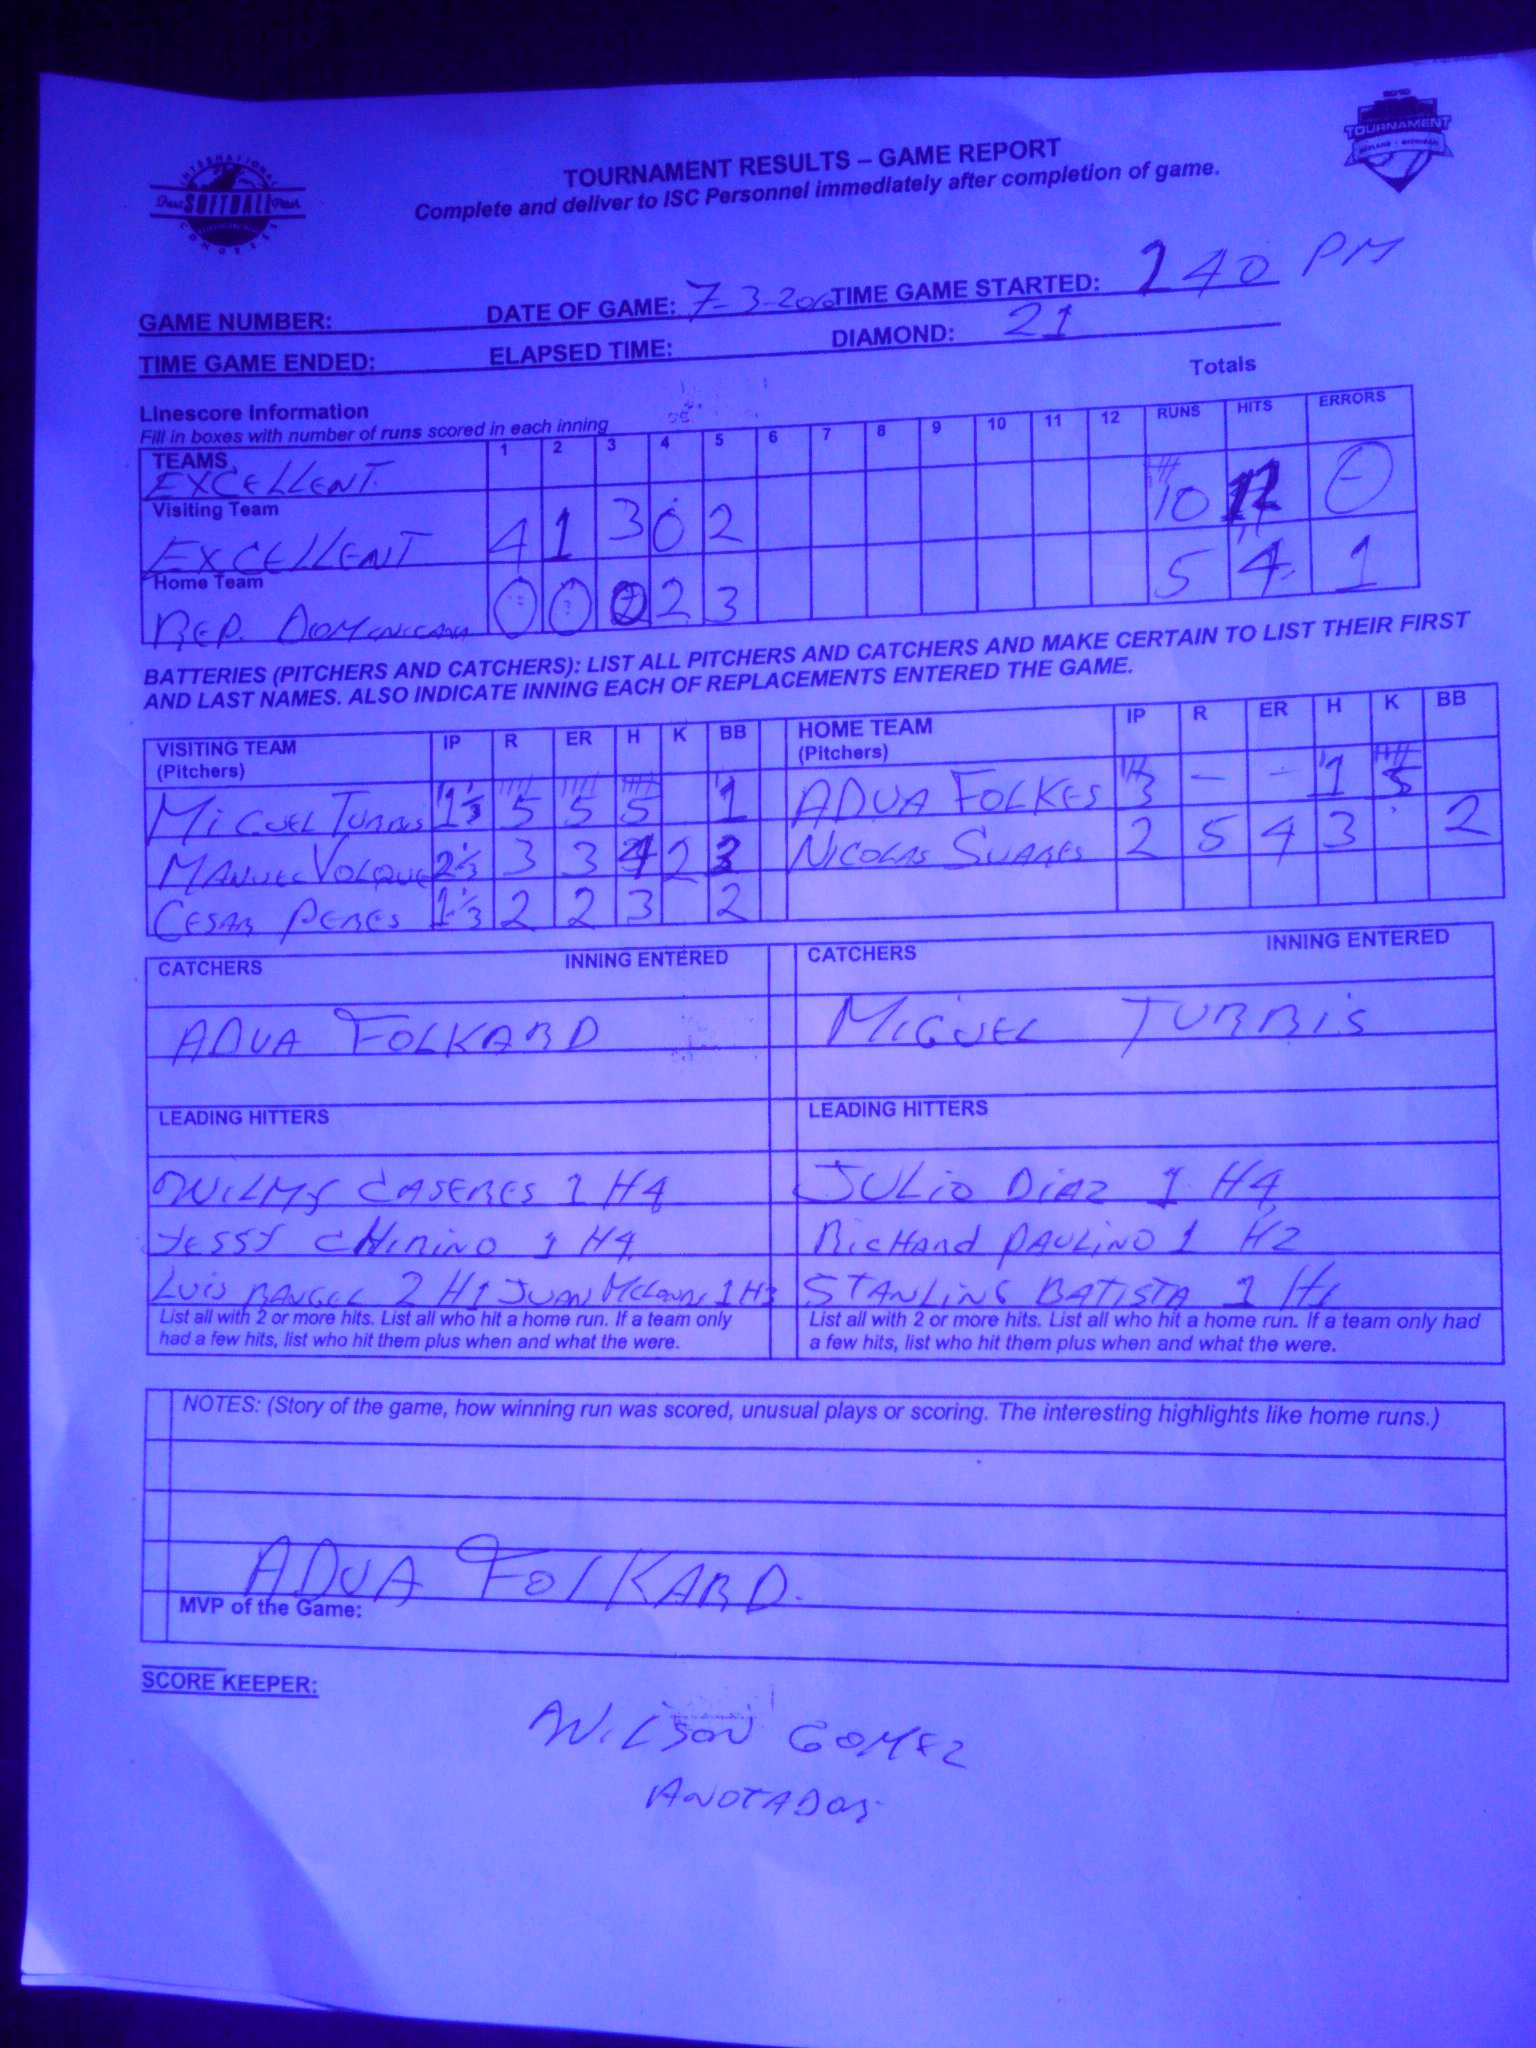 INTERNATIONAL
Fast SOFTBALL Pitch
CONGRESS
TOURNAMENT
MIDLAND - MICHIGAN
TOURNAMENT RESULTS – GAME REPORT
Complete and deliver to ISC Personnel immediately after completion of game.
GAME NUMBER: DATE OF GAME: 7-3- TIME GAME STARTED: 240 PM
TIME GAME ENDED: ELAPSED TIME: DIAMOND: 21
Totals
Linescore Information
Fill in boxes with number of runs scored in each inning
TEAMS 1 2 3 4 5 6 7 8 9 10 11 12 RUNS HITS ERRORS
EXCELLENT
Visiting Team
EXCELLENT 4 1 3 0 2 10 12 0
Home Team
REP. DOMINICANA 0 0 0 2 3 5 4 1
BATTERIES (PITCHERS AND CATCHERS): LIST ALL PITCHERS AND CATCHERS AND MAKE CERTAIN TO LIST THEIR FIRST
AND LAST NAMES. ALSO INDICATE INNING EACH OF REPLACEMENTS ENTERED THE GAME.
VISITING TEAM IP R ER H K BB HOME TEAM IP R ER H K BB
(Pitchers) (Pitchers)
MIGUEL TURBIS 1 1/3 5 5 5 1 ADUA FOLKES 3 - - 1 5
MANUEL VOLQUE 2 1/3 3 3 4 2 3 NICOLAS SUARES 2 5 4 3 2
CESAR PERES 1 1/3 2 2 3 2
CATCHERS INNING ENTERED CATCHERS INNING ENTERED
ADUA FOLKARD MIGUEL TURBIS
LEADING HITTERS LEADING HITTERS
WILMY CASERES 1 H4 JULIO DIAZ 1 H4
YESSY CHIRINO 1 H4 RICHARD PAULINO 1 H2
LUIS RANGEL 2 H1 JUAN 1 H3 STANLING BATISTA 1 H1
List all with 2 or more hits. List all who hit a home run. If a team only
had a few hits, list who hit them plus when and what the were.
List all with 2 or more hits. List all who hit a home run. If a team only had
a few hits, list who hit them plus when and what the were.
NOTES: (Story of the game, how winning run was scored, unusual plays or scoring. The interesting highlights like home runs.)
ADUA FOLKARD.
MVP of the Game:
SCORE KEEPER:
WILSON GOMEZ
ANOTADOR